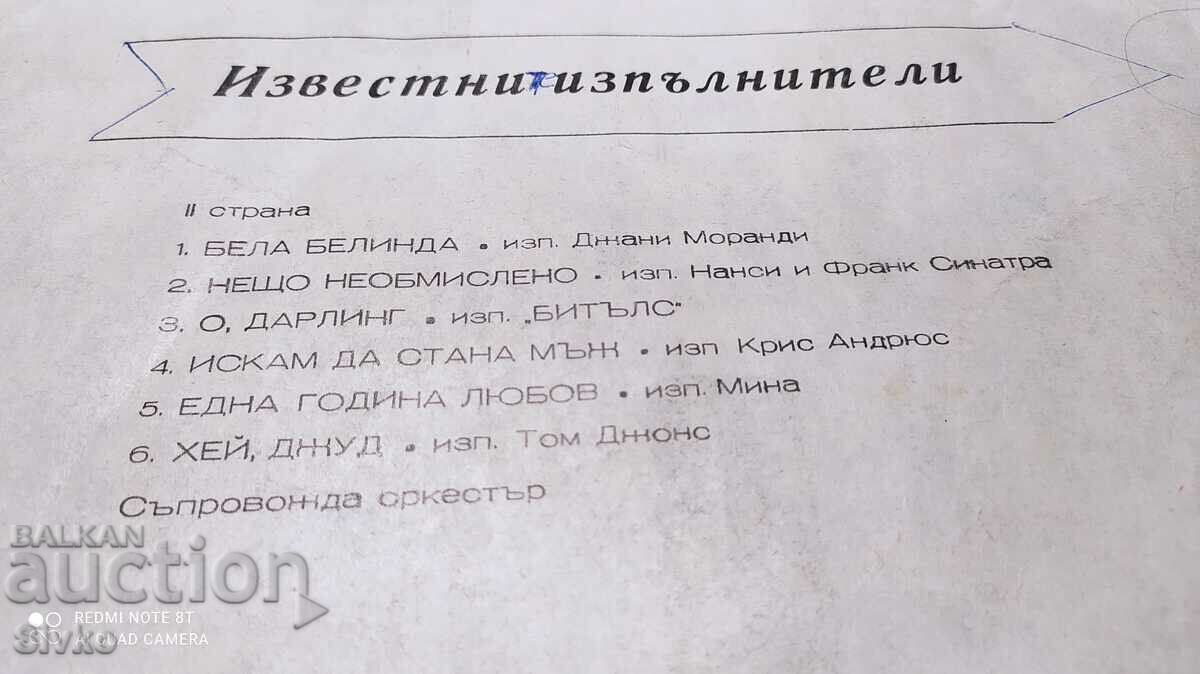 Известни те изпълнители
II страна
1. БЕЛА БЕЛИНДА • изп. Джани Моранди
2. НЕЩО НЕОБМИСЛЕНО • изп. Нанси и Франк Синатра
3. О, ДАРЛИНГ • изп. „БИТЪЛС“
4. ИСКАМ ДА СТАНА МЪЖ • изп Крис Андрюс
5. ЕДНА ГОДИНА ЛЮБОВ • изп. Мина
6. ХЕЙ, ДЖУД • изп. Том Джонс
Съпровожда оркестър
BALKAN
auction
REDMI NOTE 8T
AI QUAD CAMERA
Sivko